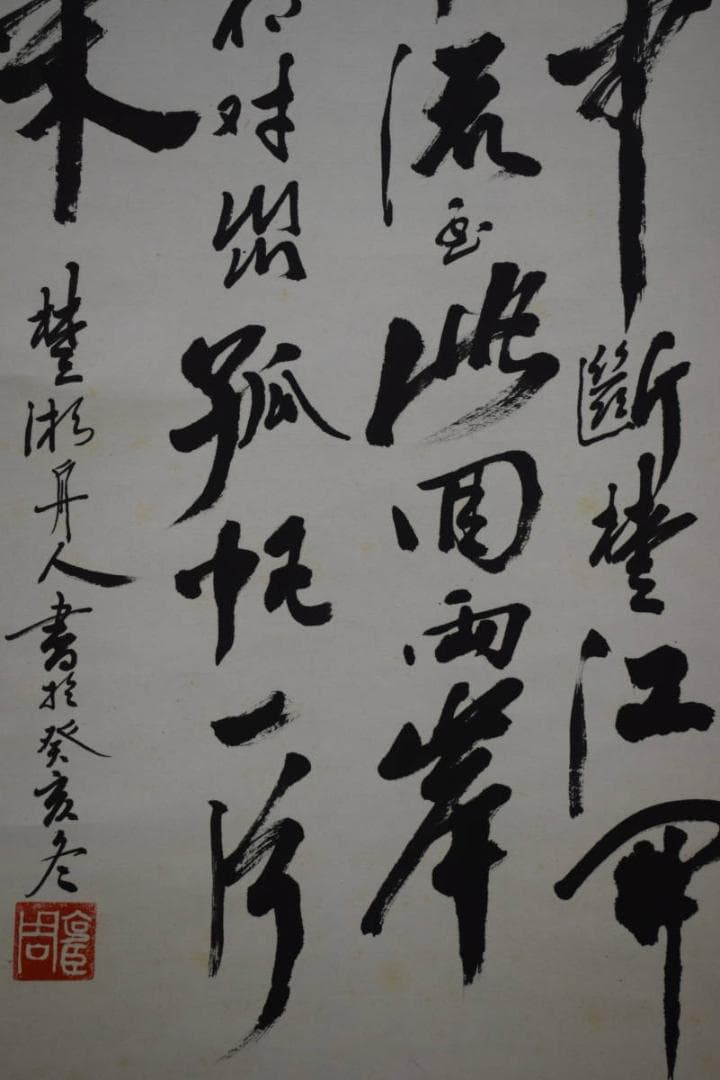 中斷楚江開
流至此回兩岸
相对出孤帆一片
来
楚湘舟人書於癸亥冬